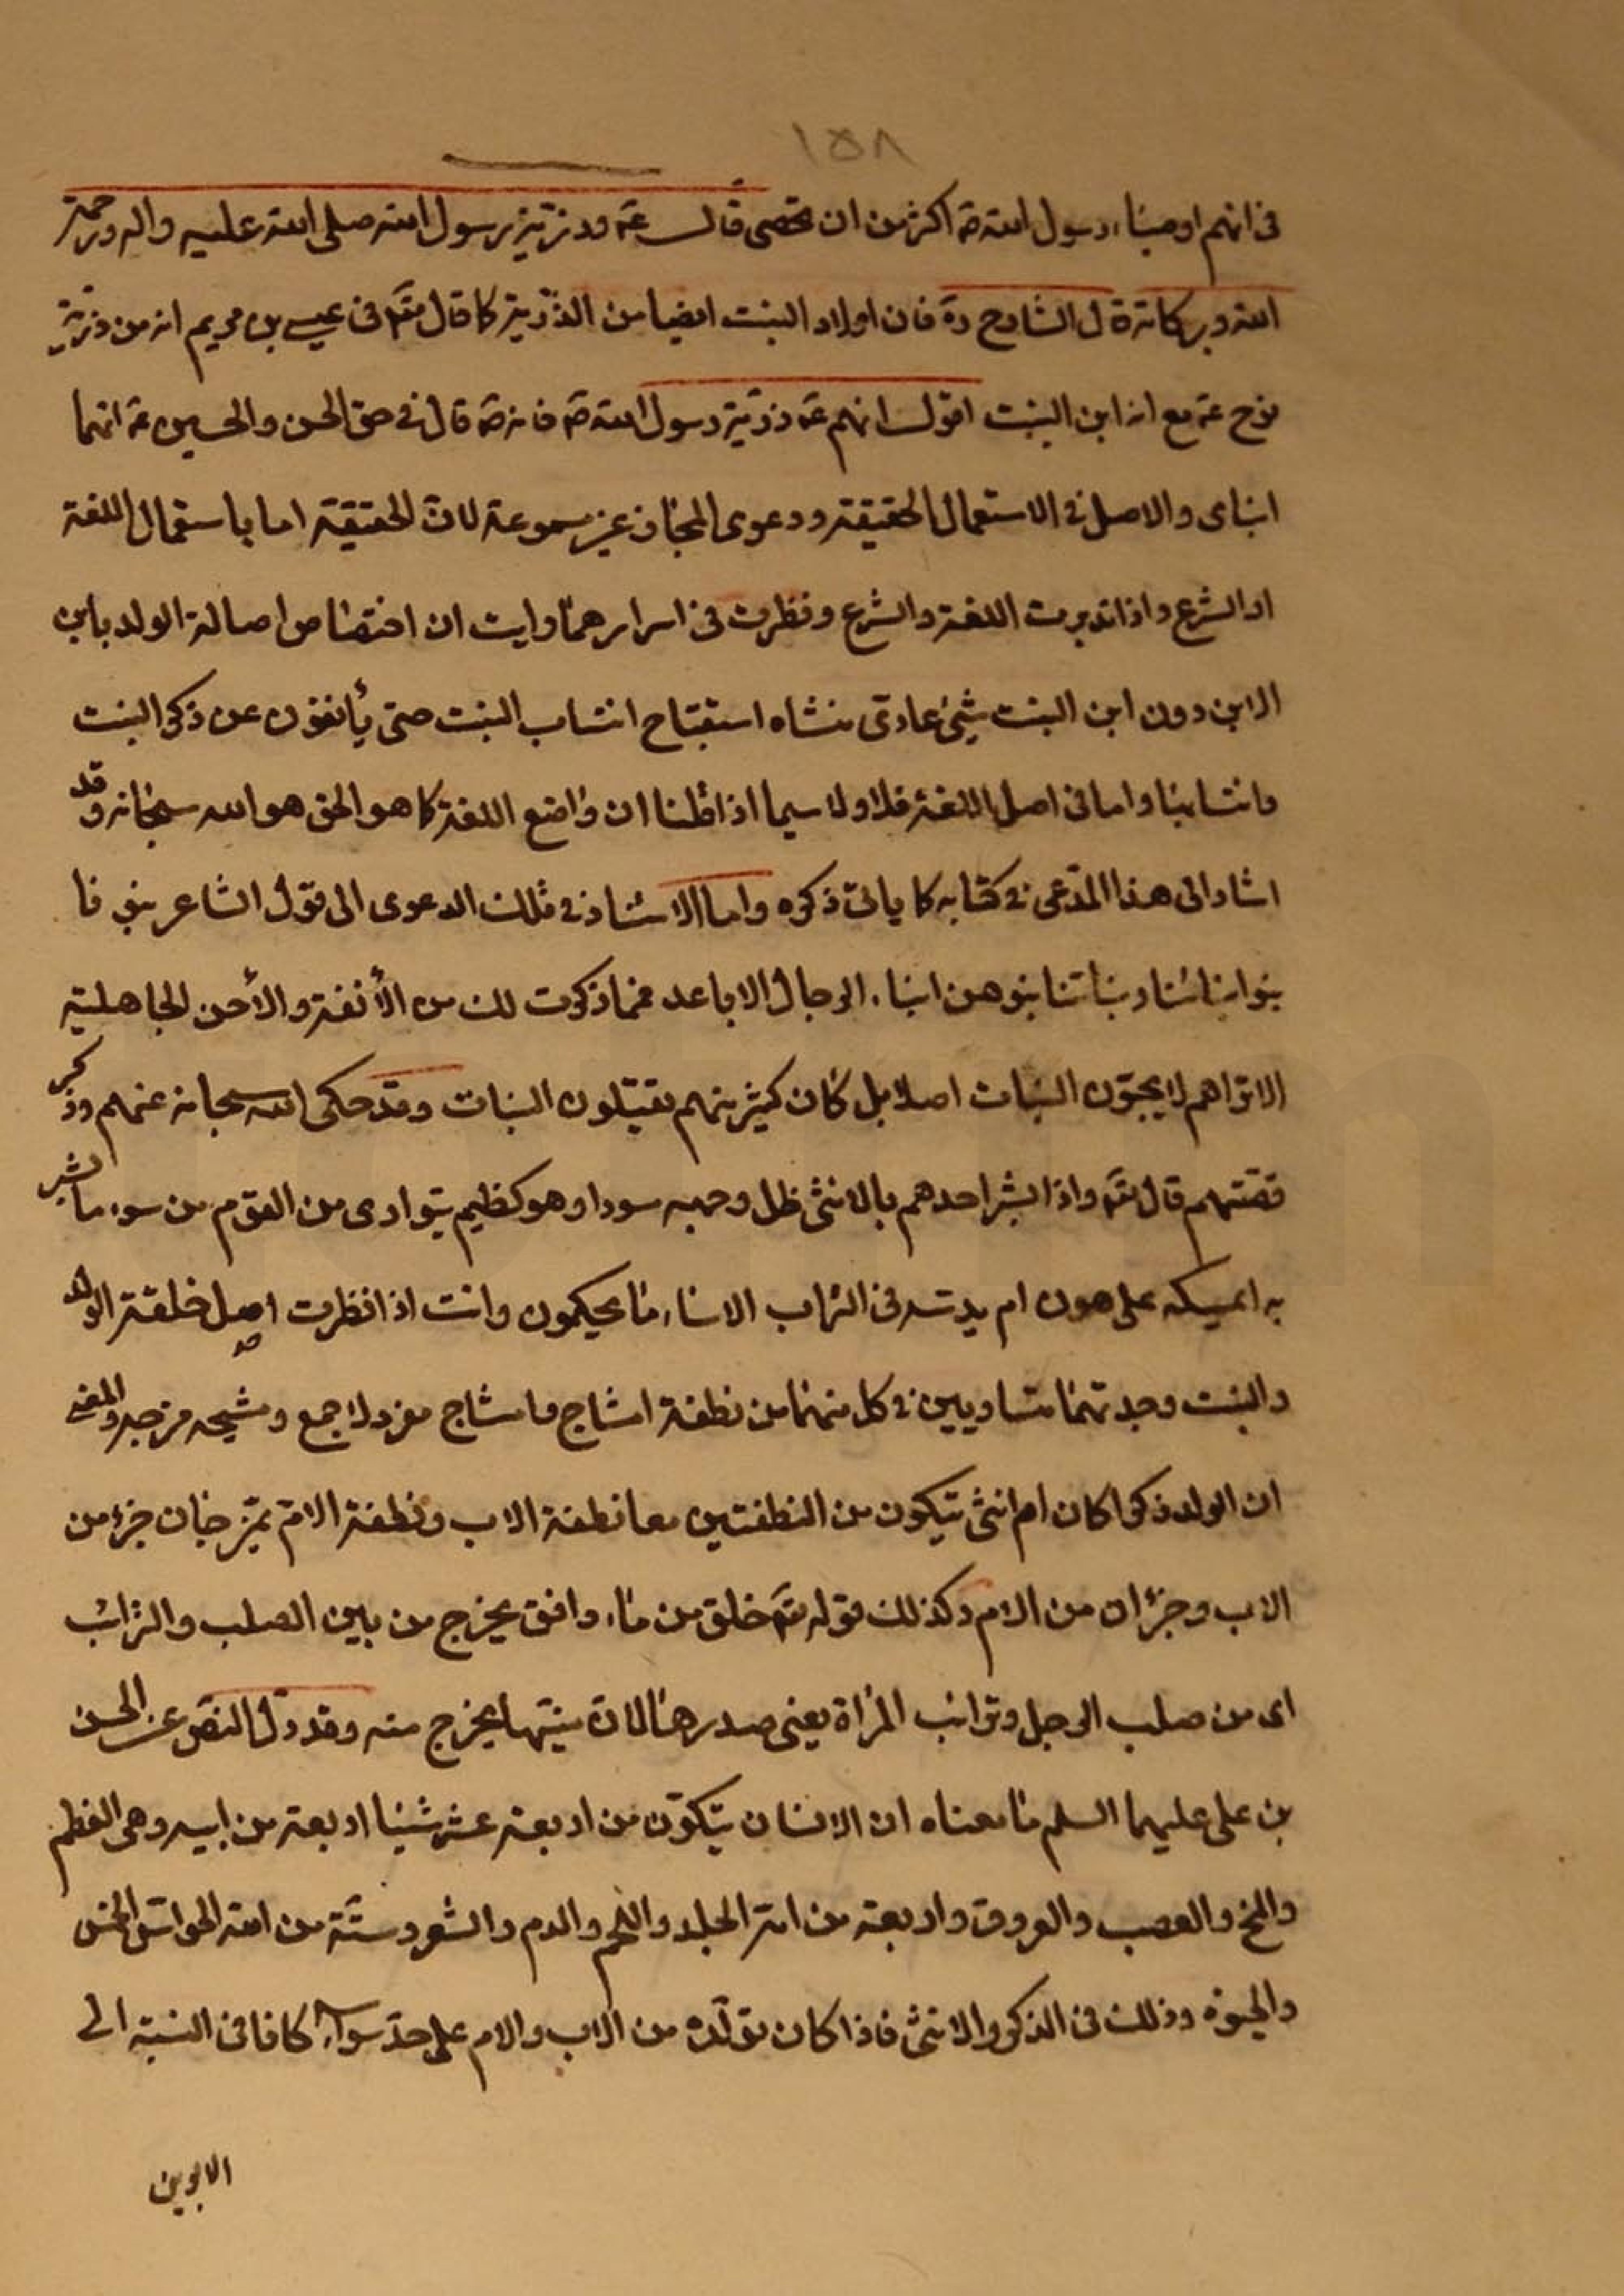 ١٥٨
فى انهم اوصياء رسول الله ص اكثر من ان تحصى قال ع وذرية رسول الله صلى الله عليه واله ورحمة
الله وبركاته قال الشارح ره فان اولاد البنت ايضا من الذرية كما قال تع فى عيسى بن مريم انه من ذرية
نوح ع مع انه ابن البنت اقول انهم ع ذرية رسول الله ص فانه ص قال فى حق الحسن والحسين ع انهما
ابناى والاصل فى الاستعمال الحقيقة ودعوى المجاز غير مسموعة لان الحقيقة اما باستعمال اللغة
او الشرع واذا تدبرت اللغة والشرع ونظرت فى اسرارهما رايت ان اختصاص اصالة الولد بابن
الابن دون ابن البنت شىء عادى منشاه استقباح انتساب البنت حتى يأنفون عن ذكر البنت
وانتسابها واما فى اصل اللغة فلا ولا سيما اذا قلنا ان واضع اللغة كما هو الحق هو الله سبحانه وقد
اشار الى هذا المدعى فى كتابه كما ياتى ذكره واما الاستناد فى تلك الدعوى الى قول الشاعر بنونا
بنو ابنائنا وبناتنا بنوهن ابناء الرجال الاباعد فمما ذكرت لك من الأنفة والأحن الجاهلية
الا تراهم لا يحبون البنات اصلا بل كان كثير منهم يقتلون البنات وقد حكى الله سبحانه عنهم وذكر
قصتهم قال تع واذا بشر احدهم بالانثى ظل وجهه مسودا وهو كظيم يتوارى من القوم من سوء ما بشر
به ايمسكه على هون ام يدسه فى التراب الا ساء ما يحكمون وانت اذا نظرت اصل خلقة الولد
والبنت وجدتهما متساويين فى كل منهما من نطفة امشاج وامشاج مفرد لا جمع ومشجه مزجه والمعنى
ان الولد ذكرا كان ام انثى يتكون من النطفتين معا نطفة الاب ونطفة الام تمتزجان جزء من
الاب وجزءان من الام وكذلك قوله تع خلق من ماء دافق يخرج من بين الصلب والترائب
اى من صلب الرجل وترائب المراة يعنى صدرها لان منيتها يخرج منه وقد دل النص عن الحسن
بن على عليهما السلم ما معناه ان الانسان يتكون من اربعة عشر شيئا اربعة من ابيه وهى العظم
والمخ والعصب والعروق واربعة من امه الجلد واللحم والدم والشعر وستة من الله الحواس الخمس
والحيوة وذلك فى الذكر والانثى فاذا كان تولده من الاب والام على حد سواء كافا فى النسبة الى
الابوين